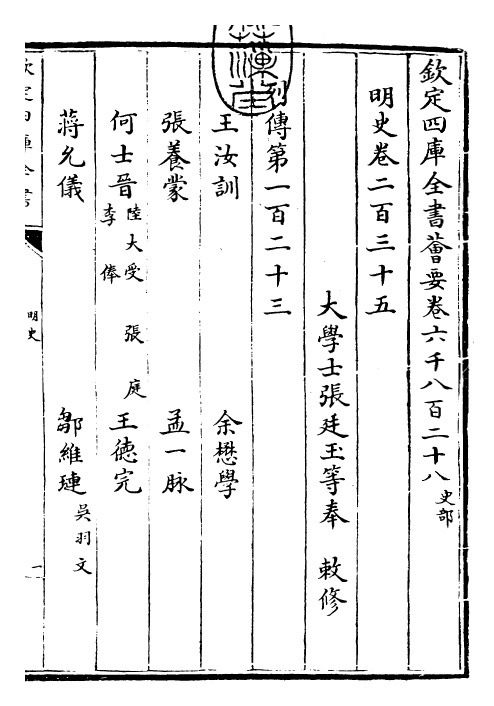 欽定四庫全書薈要卷六千八百二十八 史部
明史卷二百三十五
大學士張廷玉等奉 敕修
列傳第一百二十三
王汝訓 余懋學
張養蒙 孟一脉
何士晉 陸大受 張庭 李俸 王徳完
蔣允儀 鄒維璉 吳羽文
欽定四庫全書
明史
一